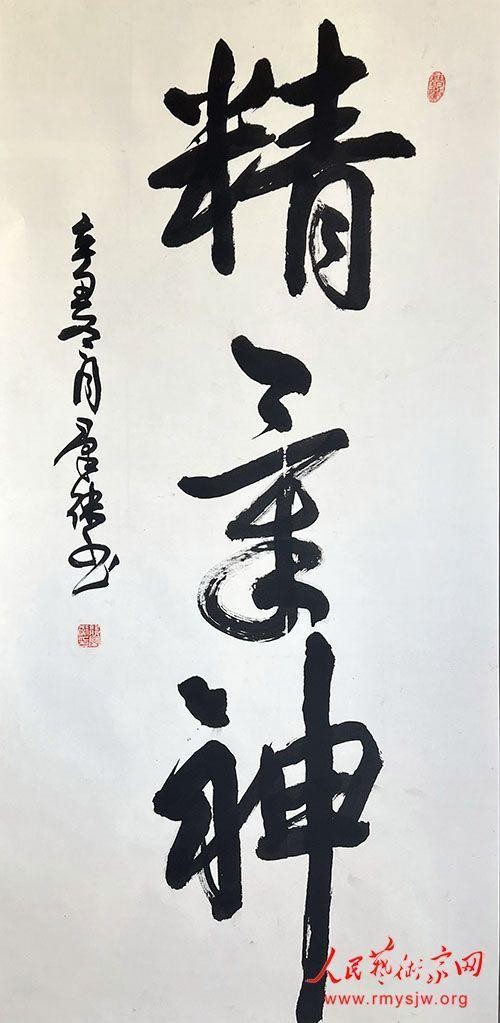 精氣神
辛丑 月 书
人民藝術家网
www.rmysjw.org